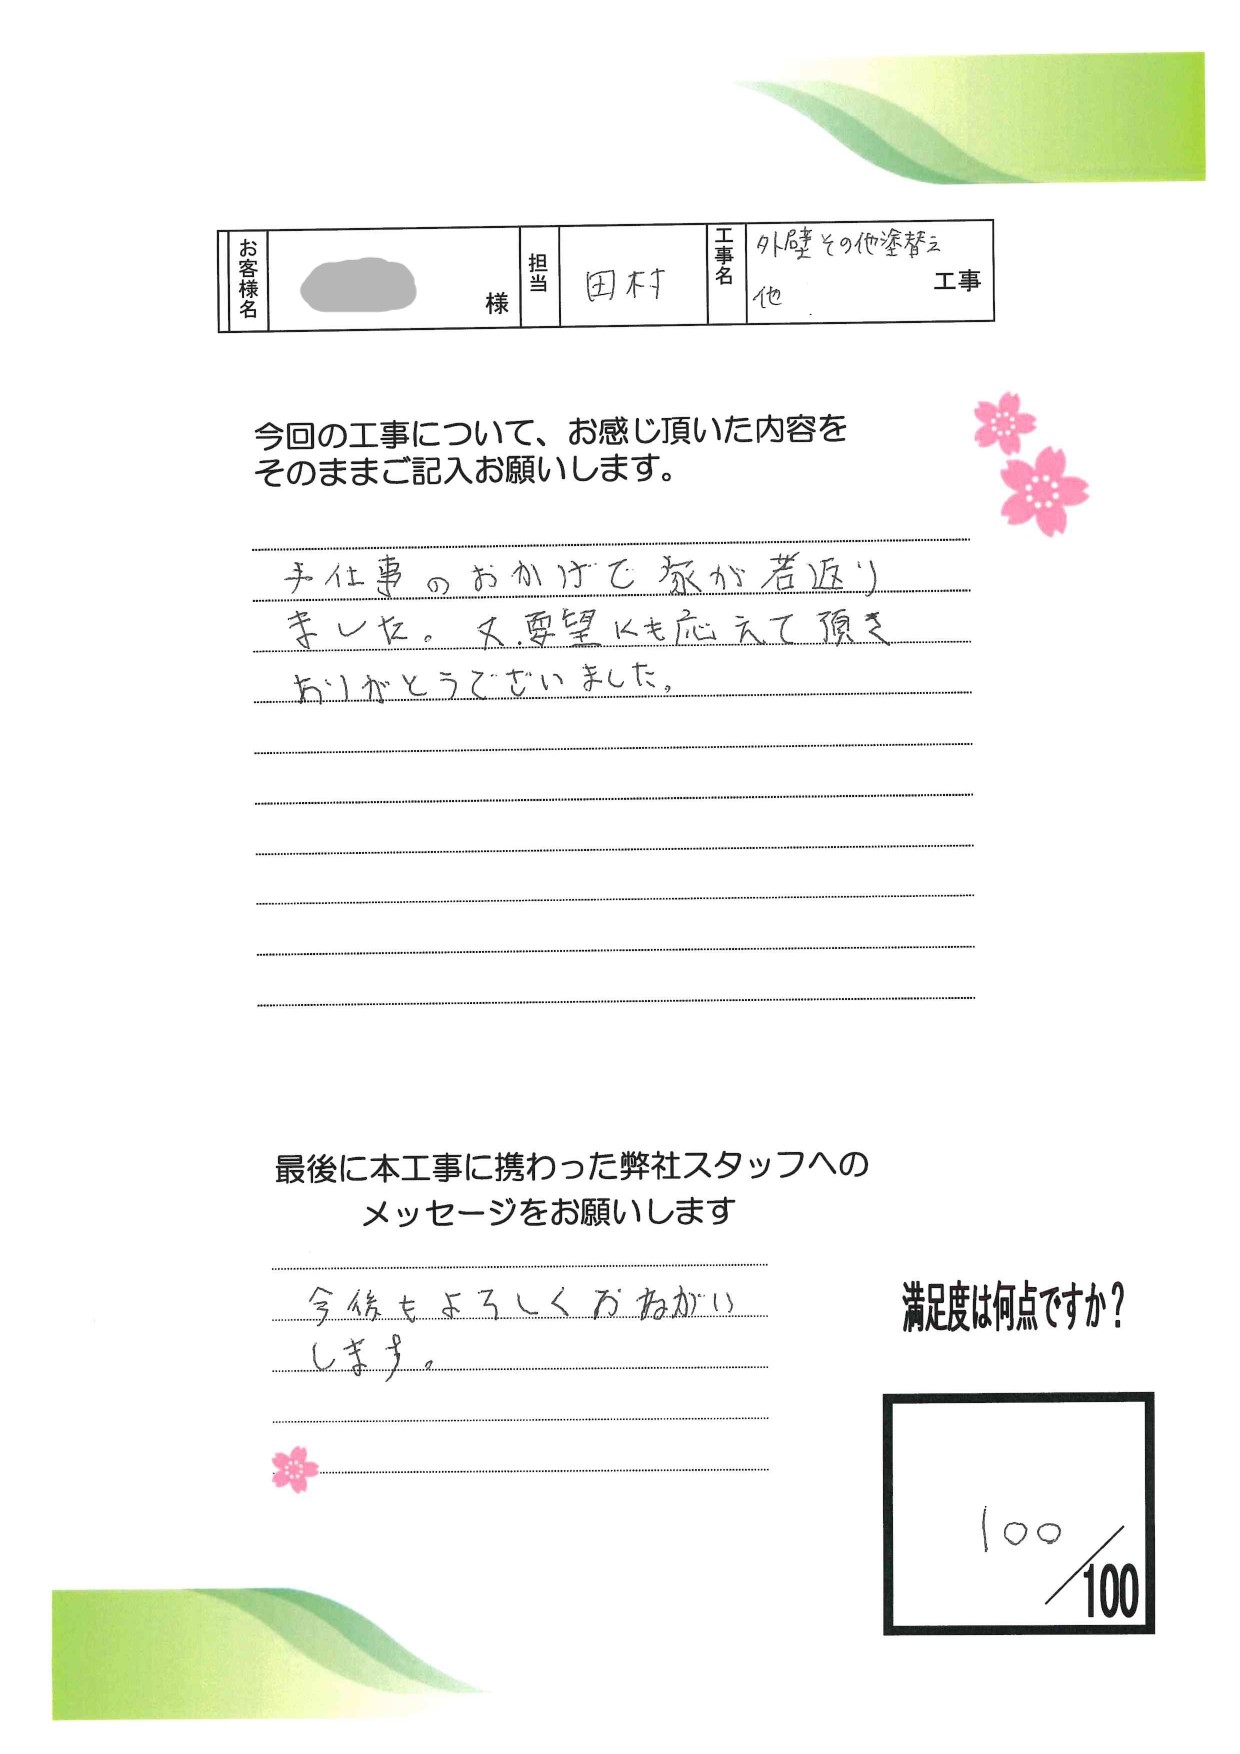 お客様名
様
担当
田村
工事名
外壁その他塗替え
他
工事
今回の工事について、お感じ頂いた内容を
そのままご記入お願いします。
手仕事のおかげで家が若返り
ました。又、要望にも応えて頂き
ありがとうございました。
最後に本工事に携わった弊社スタッフへの
メッセージをお願いします
今後もよろしくおねがい
します。
満足度は何点ですか？
100
／100